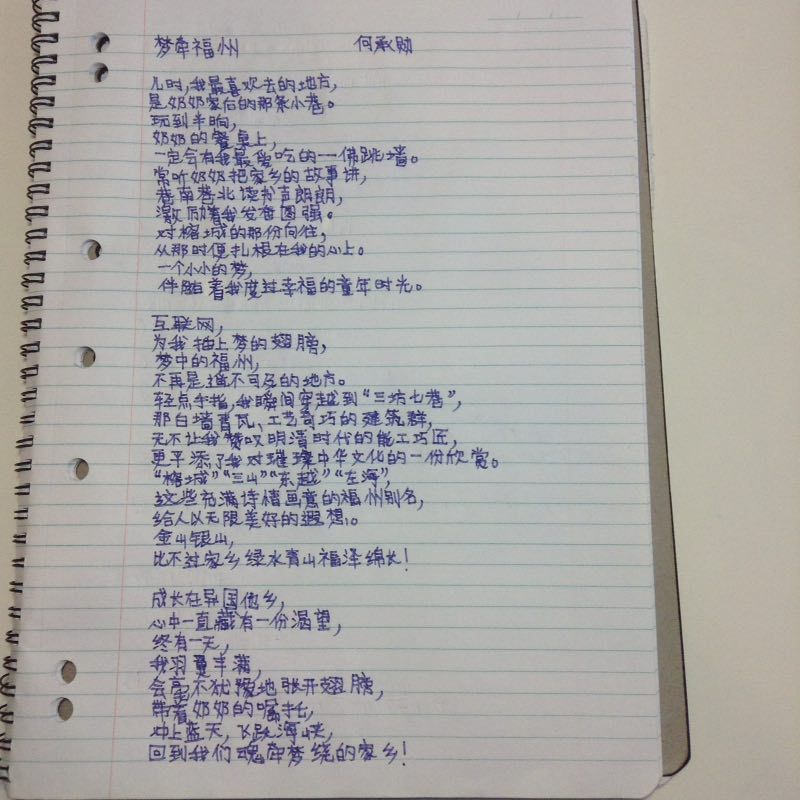 梦牵福州 何承勋
儿时,我最喜欢去的地方,
是奶奶家后的那条小巷。
玩到半晌,
奶奶的餐桌上,
一定会有我最爱吃的一佛跳墙。
常听奶奶把家乡的故事讲,
巷南巷北读书声朗朗,
激励着我发奋图强。
对榕城的那份向往,
从那时便扎根在我的心上。
一个小小的梦,
伴随着我度过幸福的童年时光。
互联网,
为我插上梦的翅膀,
梦中的福州,
不再是遥不可及的地方。
轻点手指,我瞬间穿越到“三坊七巷”,
那白墙青瓦、工艺奇巧的建筑群,
无不让我赞叹明清时代的能工巧匠,
更平添了我对璀璨中华文化的一份欣赏。
“榕城”“三山”“东越”“左海”,
这些充满诗情画意的福州别名,
给人以无限美好的遐想。
金山银山,
比不过家乡绿水青山福泽绵长!
成长在异国他乡,
心中一直藏有一份渴望,
终有一天,
我羽翼丰满,
会毫不犹豫地张开翅膀,
带着奶奶的嘱托,
冲上蓝天,飞跃海峡,
回到我们魂牵梦绕的家乡!